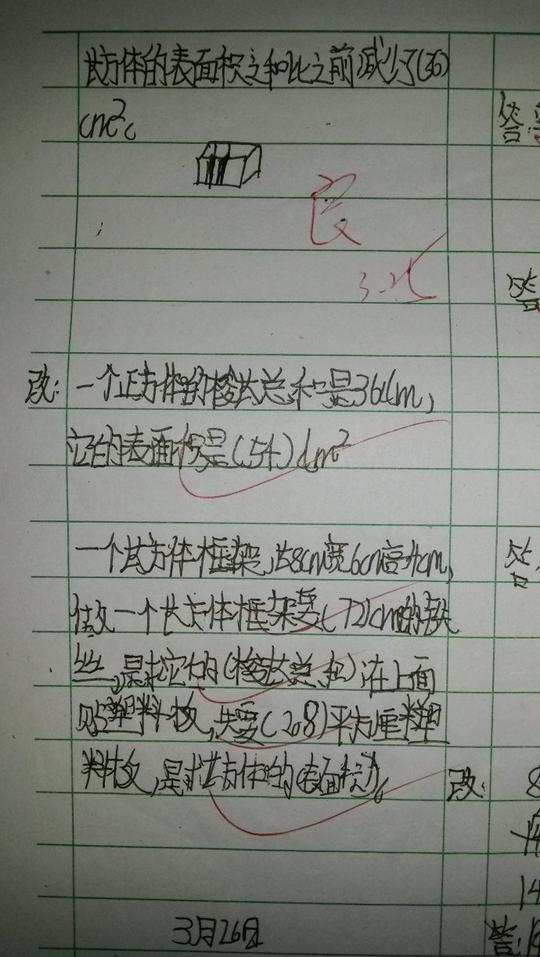 长方体的表面积之和比之前减少了(36)
cm²。
良
3.25
改:一个正方体的棱长总和是36dm,
它的表面积是(54)dm²
一个长方体框架,长8cm宽6cm高4cm,
做一个长方体框架要(72)cm的铁
丝,是求它的(棱长总和)在上面
贴塑料板,共要(208)平方厘米塑
料板,是求长方体的(表面积)。
3月26日
答:
答
答
改:
14
答: